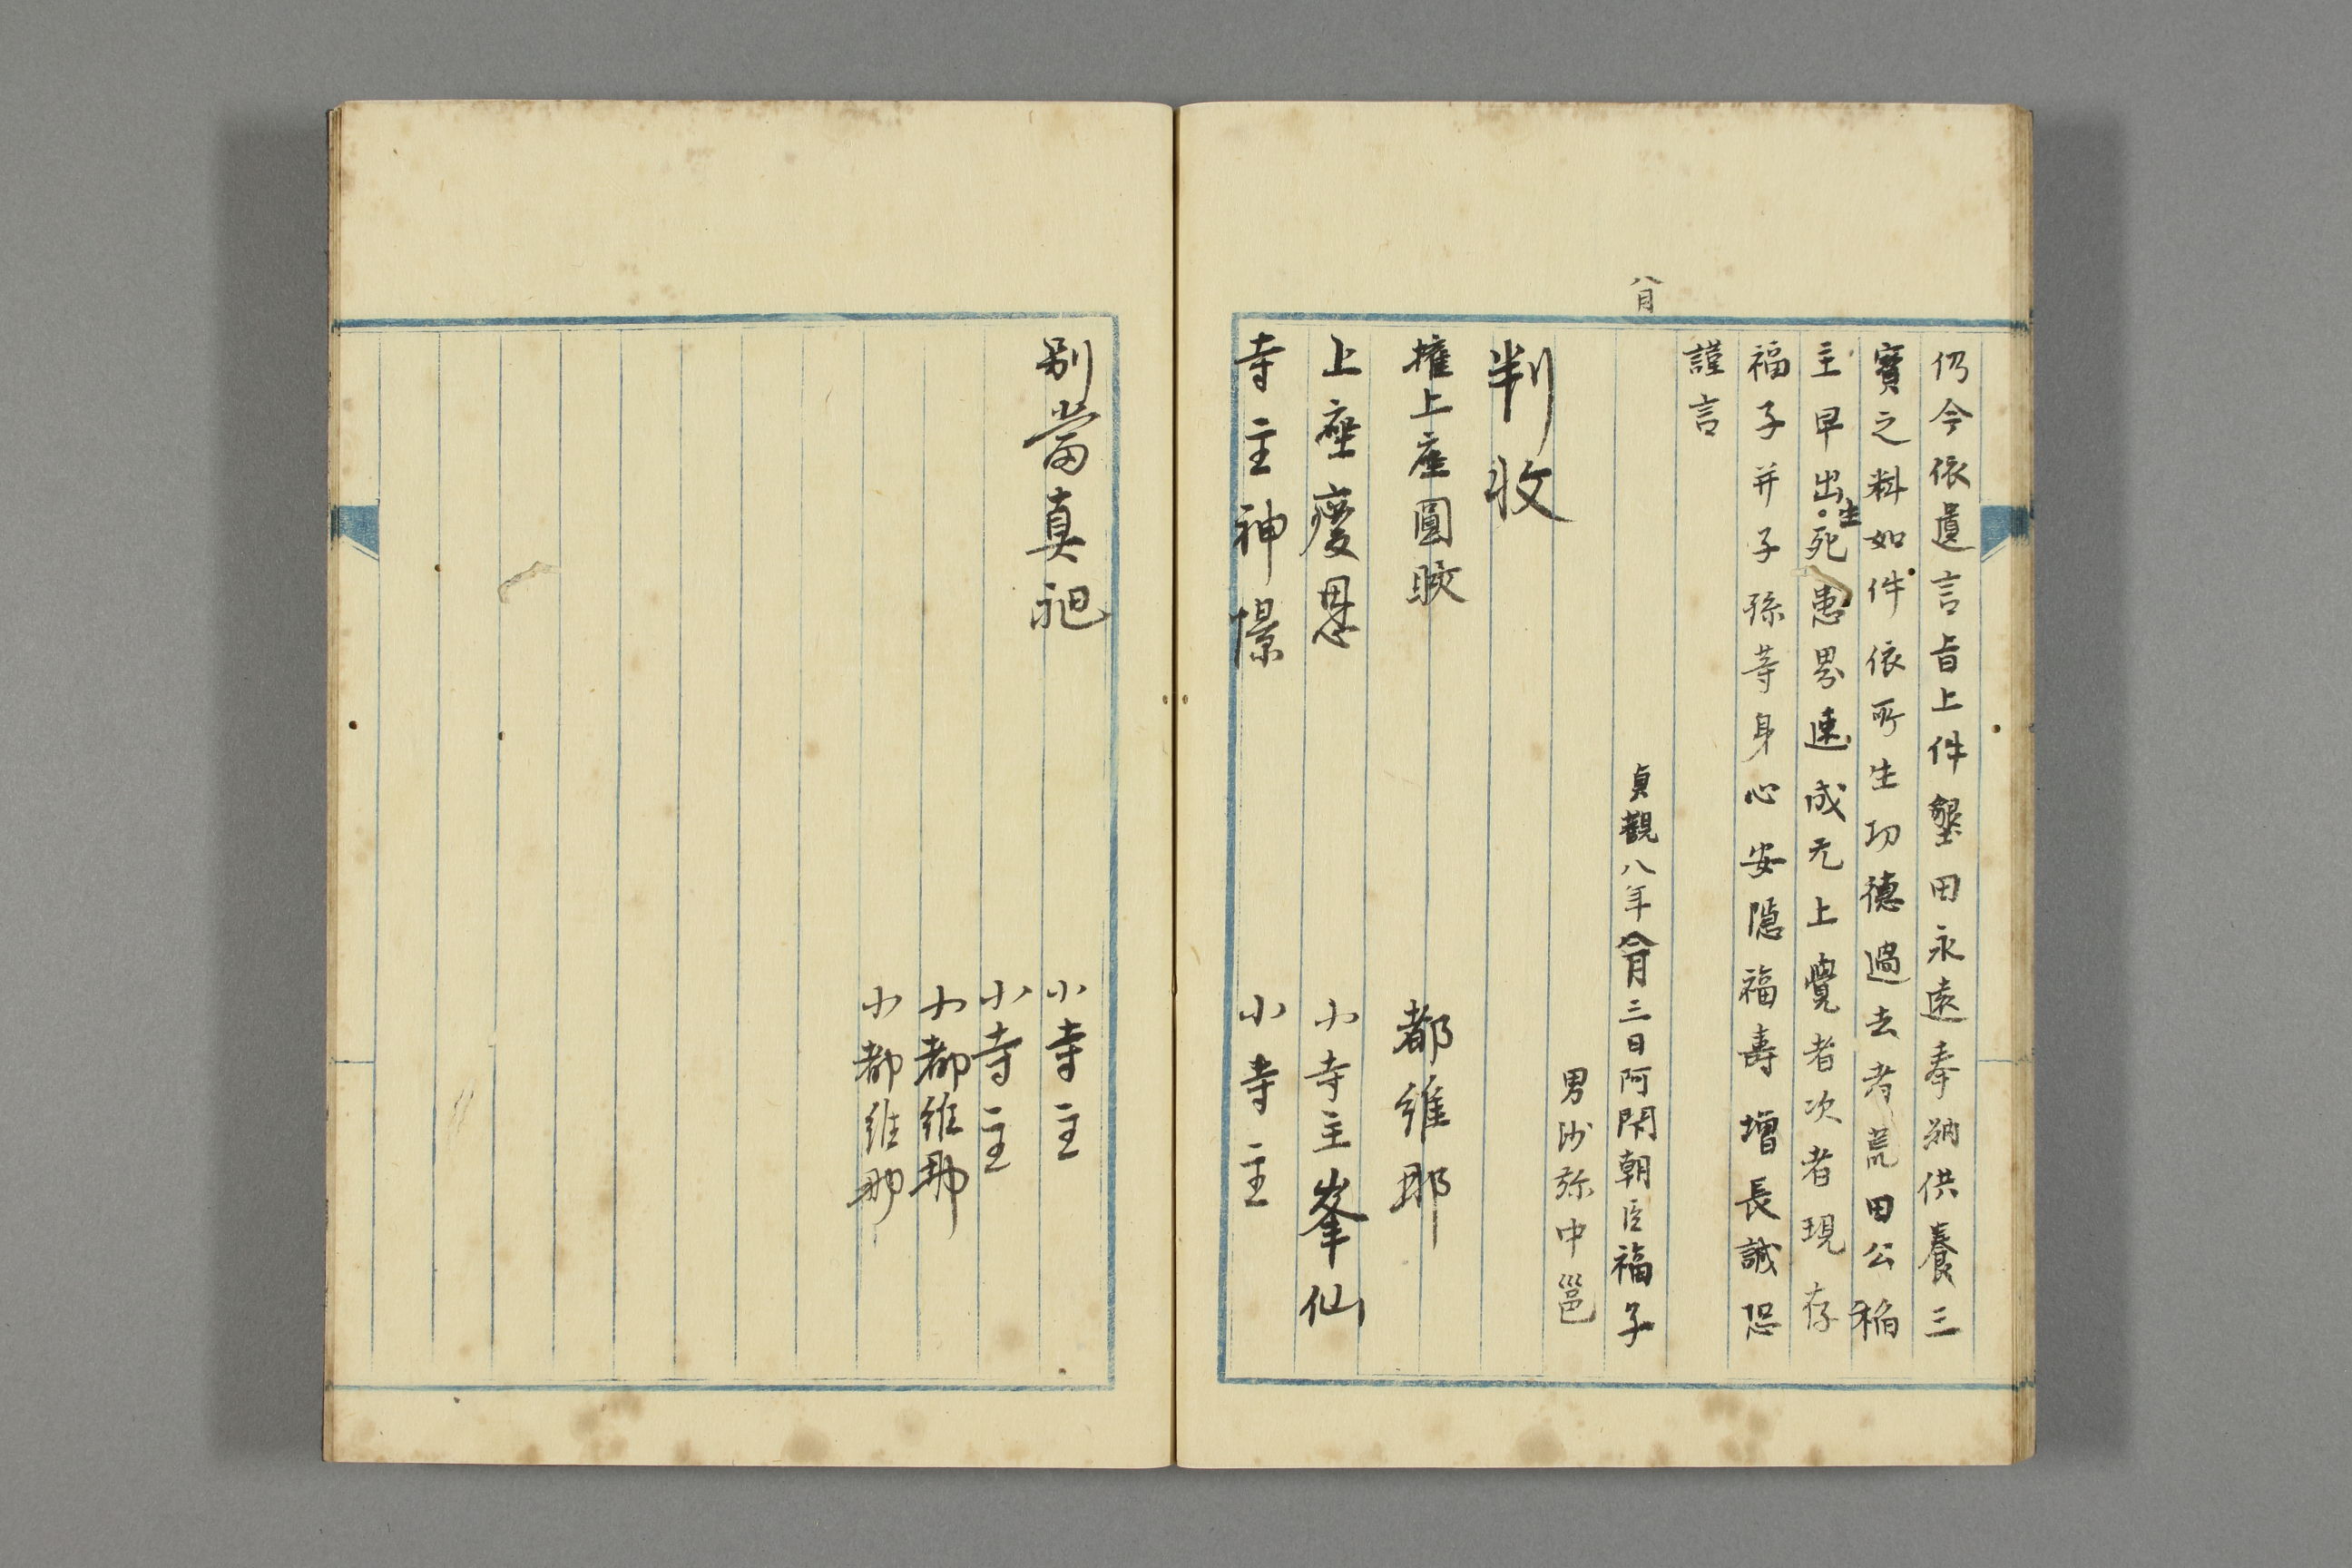 仍今依遺言旨上件墾田永遠奉納供養三
寶之料如件依所生功德過去者荒田公稲
主早出生死患界速成无上覺者次者現存
福子并子孫等身心安隱福壽增長誠恐
謹言
八月
貞觀八年八月三日阿閇朝臣福子
男沙弥中邕
判收
權上座圓皎
都維那
上座慶恩
小寺主峯仙
寺主神憬
小寺主
別當真
小寺主
小寺主
小都維那
小都維那